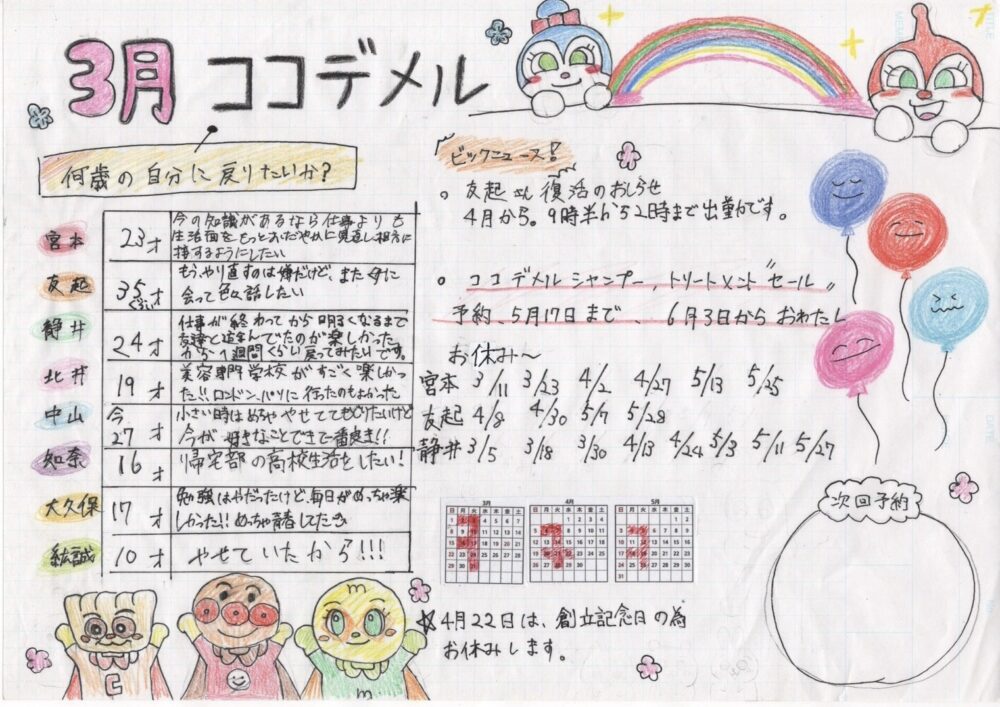 3月 ココデメル
何歳の自分に戻りたいか?
宮本 23才 今の知識があるなら仕事よりも
生活面をもっとおだやかに見直し相方に
接するようにしたい
友起 35才ぐらい もう、やり直すのは嫌だけど、また母に
会って色々話したい
静井 24才 仕事が終わってから明るくなるまで
友達と遊んでたのが楽しかった
から1週間くらい戻ってみたいです。
北井 19才 美容専門学校がすごく楽しかっ
た!!ロンドン、パリに行ったのもよかった
中山 今 27才 小さい時はめちゃやせててもどりたいけど
今が好きなことできて一番良き!!
知奈 16才 帰宅部の高校生活をしたい!
大久保 17才 勉強はやだったけど、毎日がめっちゃ楽
しかった!!めっちゃ青春してたき
紘誠 10才 やせていたから!!!
ビックニュース!
。友起さん復活のおしらせ
4月から。9時半から2時まで出勤です。
。ココデメルシャンプー,トリートメント"セール"
予約、5月17日まで、 6月3日からおわたし
お休み〜
宮本 3/11 3/23 4/2 4/27 5/13 5/25
友起 4/8 4/30 5/7 5/28
静井 3/5 3/18 3/30 4/13 4/24 5/3 5/11 5/27
3月 4月 5月
日 月 火 水 木 金 土 日 月 火 水 木 金 土 日 月 火 水 木 金 土
☆4月22日は、創立記念日の為
お休みします。
次回予約
C
m